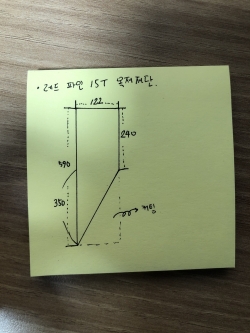 · 레드 파인 15T 목재재단.
122
240
590
350
커팅